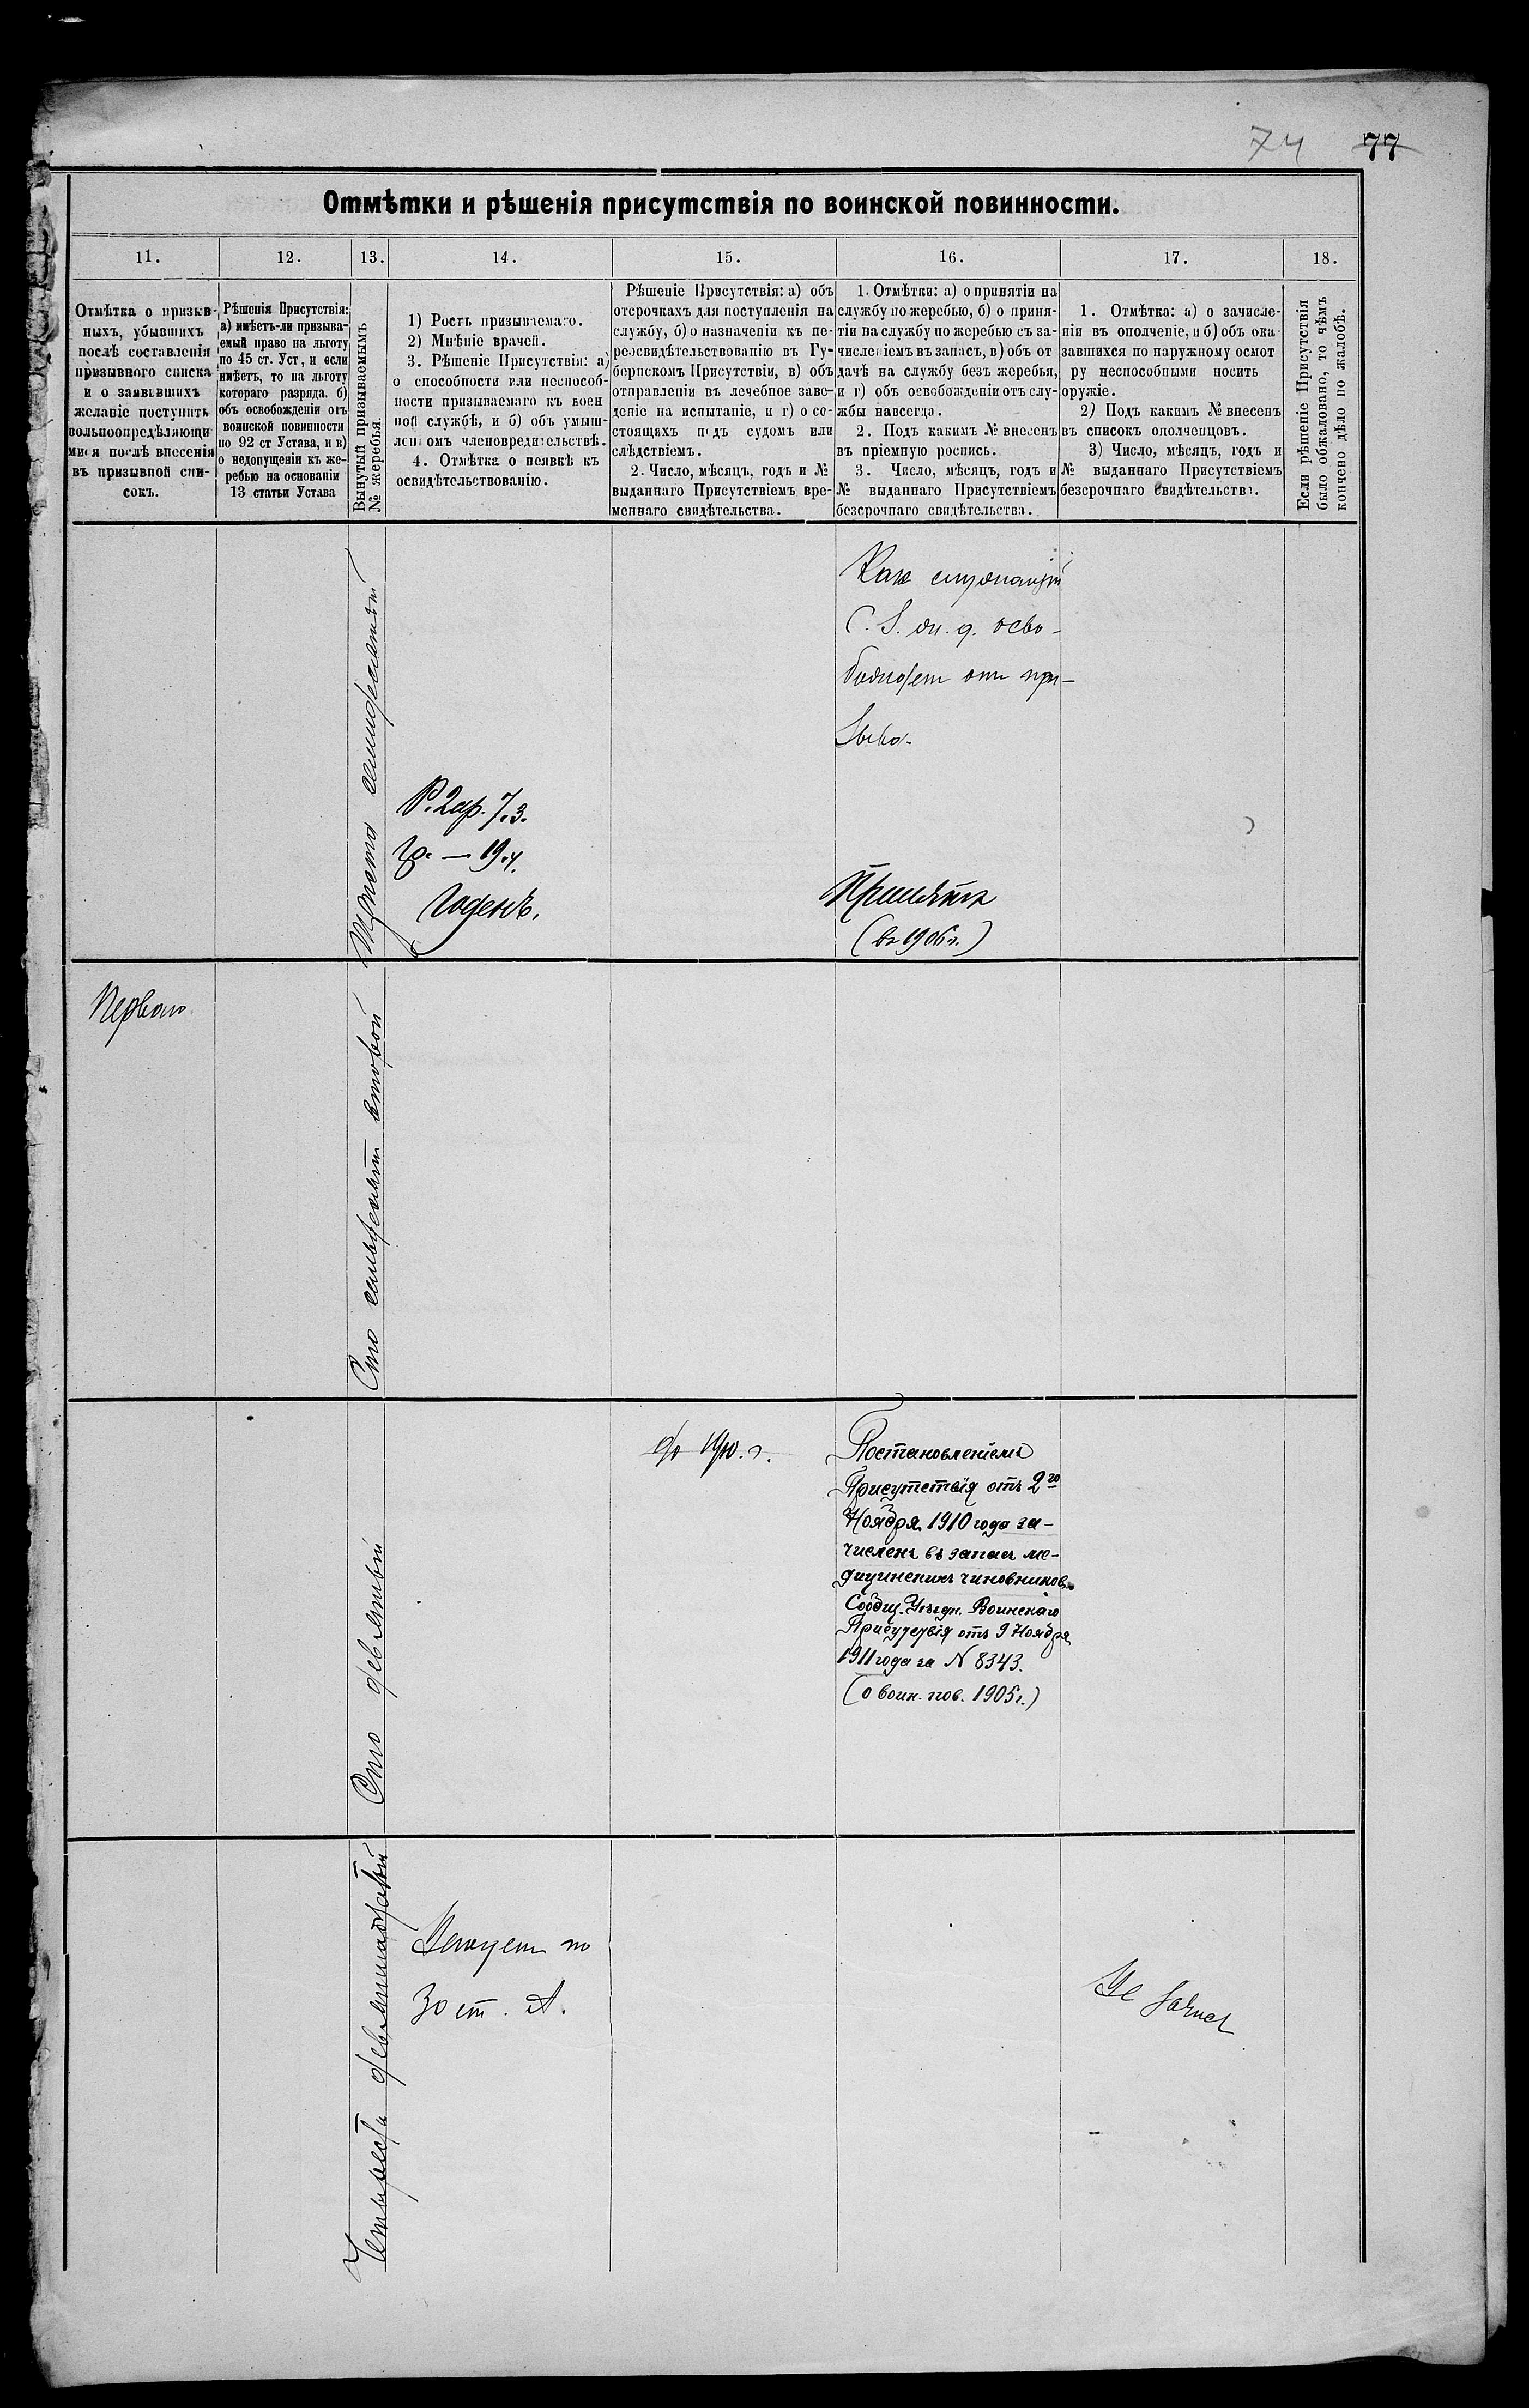 74 77
Отмѣтки и рѣшенія присутствія по воинской повинности.
11. 12. 13. 14. 15. 16. 17. 18.
Отмѣтка о призыв-
ныхъ, убывшихъ
послѣ составленія
призывного списка
и о заявившихъ
желаніе поступить
вольноопредѣляющи
мися послѣ внесенія
въ призывной спи-
сокъ.
Рѣшенія Присутствія:
а) имѣетъ-ли призыва-
емый право на льготу
по 45 ст. Уст, и если
имѣетъ, то на льготу
котораго разряда. б)
объ освобожденіи отъ
воинской повинности
по 92 ст Устава, и в)
о недопущеніи къ же-
ребью на основаніи
13 статьи Устава
Вынутый призываемымъ
№ жеребья.
1) Ростъ призываемаго.
2) Мнѣніе врачей.
3. Рѣшеніе Присутствія: а)
о способности или неспособ-
ности призываемаго къ воен
ной службѣ, и б) объ умыш-
леномъ членовредительствѣ.
4. Отмѣтка о неявкѣ къ
освидѣтельствованію.
Рѣшеніе Присутствія: а) объ
отсрочкахъ для поступленія на
службу, б) о назначеніи къ пе-
реосвидѣтельствованію въ Гу-
бернскомъ Присутствіи, в) объ
отправленіи въ лечебное заве-
деніе на испытаніе, и г) о со-
стоящахъ подъ судомъ или
слѣдствіемъ.
2. Число, мѣсяцъ, годъ и №
выданнаго Присутствіемъ вре-
меннаго свидѣтельства.
1. Отмѣтки: а) о принятіи на
службу по жеребью, б) о приня-
тіи на службу по жеребью съ за-
численіемъ въ запасъ, в) объ от
дачѣ на службу безъ жеребья,
и г) объ освобожденіи отъ слу-
жбы навсегда.
2. Подъ какимъ № внесенъ
въ пріемную роспись.
3. Число, мѣсяцъ, годъ и
№ выданнаго Присутствіемъ
безсрочнаго свидѣтельства.
1. Отмѣтка: а) о зачисле-
ніи въ ополченіе, и б) объ ока
завшихся по наружному осмот
ру неспособными носить
оружіе.
2) Подъ какимъ № внесенъ
въ списокъ ополченцовъ.
3) Число, мѣсяцъ, годъ и
№ выданнаго Присутствіемъ
безсрочнаго свидѣтельства.
Если рѣшеніе Присутствія
было обжаловано, то чѣмъ
кончено дѣло по жалобѣ.
Триста семидесятый
Р. 2ар. 7.3.
Гр. — 19.4.
Годенъ.
Как служащій
С. З. ж. д. осво-
божден от при-
зыва.
Принятъ
(въ 1906 г.)
Сто семьдесят второй
Сто девятый
до 1910. г.
Постановленіемъ
Присутствія отъ 2го
Ноября 1910 года за-
численъ въ запасъ ме-
дицинскихъ чиновниковъ
Сообщ. Уѣздн. Воинскаго
Присутствія отъ 9 Ноября
1911 года за N 8343.
(о воин. пов. 1905 г.)
Четыреста девятнадцатый
30 ст. А.
Не